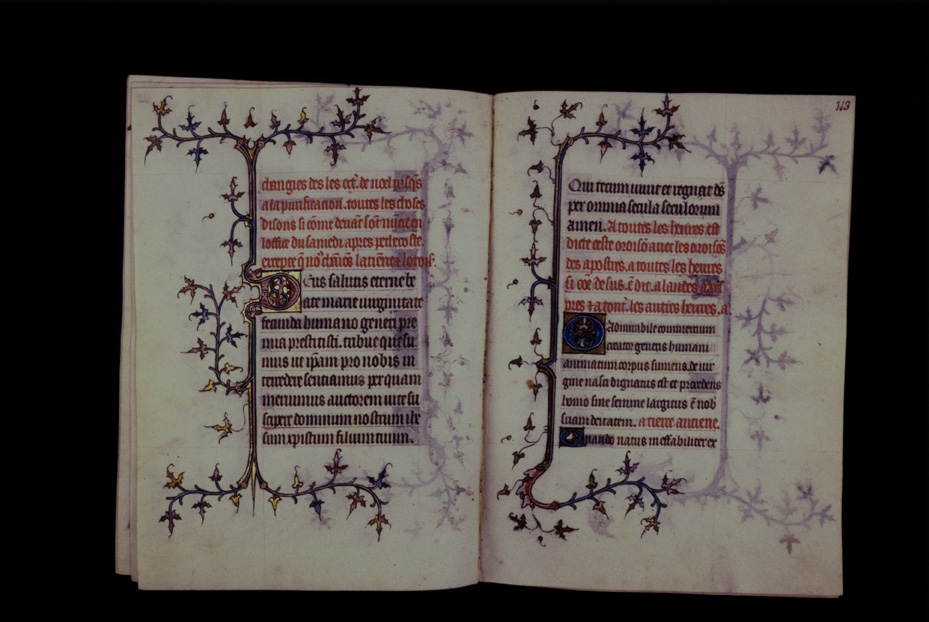 changies des les oct. de noel iusqs
a la purification. toutes les choses
disons si come deuāt sōt mises en
loffice du samedi apres penthecoste.
excepte q̄ nō disōns
Deus salutis eterne be
ate marie uirginitate
fecunda humano generi pre
mia prestitisti. tribue quesu
mus ut ip̄am pro nobis in
tercedere sentiamus per quam
meruimus auctorem uite su
scipere dominum nostrum ihe
sum xpistum filium tuum.
113
Qui tecum uiuit et regnat ds̄
per omnia secula seculorum
amen. A toutes les heures est
dicte ceste oroisō auec les oroisōs
des apostres. a toutes les heures
si cōe desus ē dit. a laudes
pres et a tout. les autres heures. a.
O Admirabile commertium
creator generis humani
animatum corpus sumens. de uir
gine nasci dignatus est et procedens
homo sine semine largitus ē nob
suam deitatem. a tierce antiene.
Quando natus ineffabiliter ex